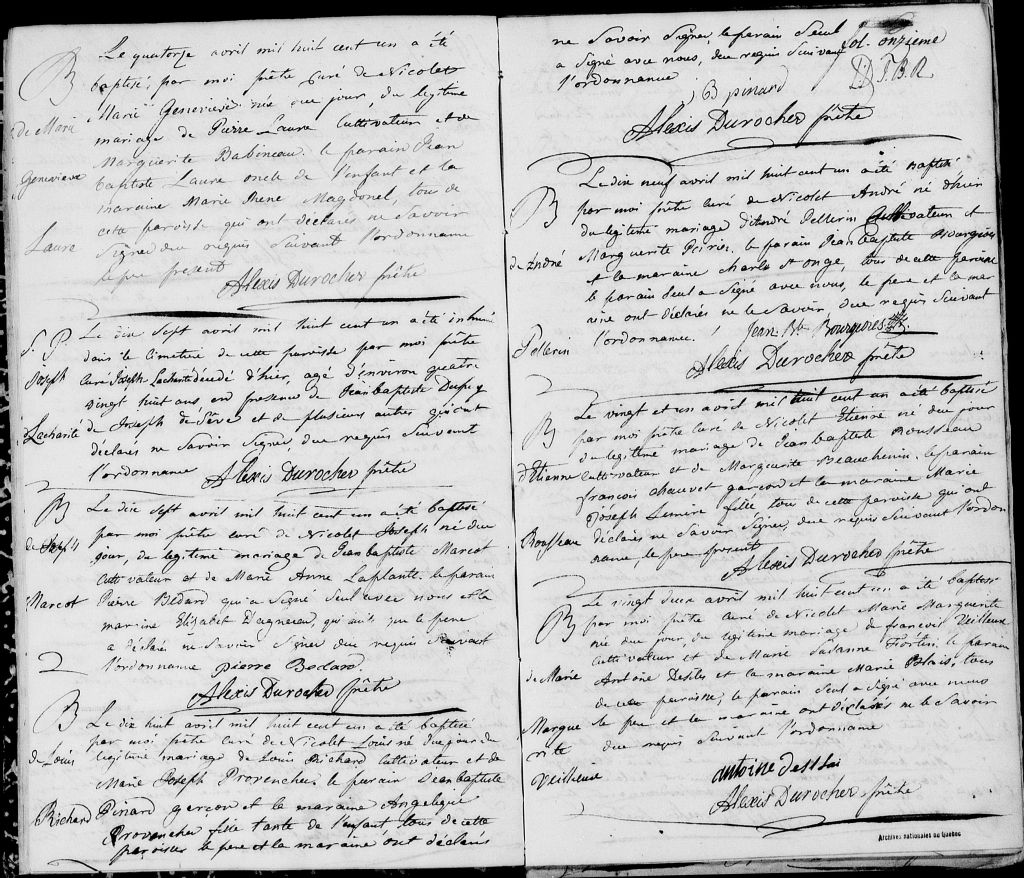 Le quatorze avril mil huit cent un a été
B
baptisé, par moi prêtre Curé de Nicolet
Marie Genevieve née ce jour, du legitime
de Marie
mariage de Pierre Laure Cultivateur et de
Marguerite Babineau. le parain Jean
Genevieve
baptiste Laure oncle de l'enfant et la
maraine Marie Rene Magdonel, tou de
cette paroisse qui ont declarés ne Savoir
Laure
Signer de ce requis Suivant l'ordonnance
le pere present
Alexis Durocher prêtre
S. P.
Le dix Sept avril mil huit cent un a été inhumé
dans le Cimetiere de cette paroisse par moi prêtre
Joseph
curé Joseph Lacharité décédé d'hier, agé d'environ quatre
vingt huit ans en presence de Jean baptiste Dupuy
Lacharité
de Joseph de Sêve et de plusieurs autres qui ont
déclarés ne Savoir Signer, de ce requis Suivant
l'ordonnance
Alexis Durocher prêtre
B
Le dix Sept avril mil huit cent un a été baptisé
par moi prêtre curé de Nicolet Joseph né du
de Joseph
jour du legitime mariage de Jean baptiste Marcot
Cultivateur et de Marie Anne Laplante. le parain
Marcot
Pierre Bedard qui a Signé Seul avec nous et la
maraine Elisabet D'agneau, qui ainsi que le pere
a déclaré ne Savoir Signer de ce requis Suivant
l'ordonnance pierre Bedard
Alexis Durocher prêtre
B
Le dix huit avril mil huit cent un a été baptisé
par moi prêtre curé de Nicolet Louis né du jour du
de Louis
legitime mariage de Louis Richard Cultivateur et de
Marie Joseph Provencher. le parain Jean baptiste
Richard
Pinard garçon et la maraine Angelique
Provencher fille tante de l'enfant, tous de cette
paroisse le pere et la maraine ont déclarés
ne Savoir Signer, le parain Seul
fol. onzieme
a Signé avec nous, de ce requis Suivant
l'ordonnance
J. B. R
J B pinard
Alexis Durocher prêtre
Le dix neuf avril mil huit cent un a été baptisé
B
par moi prêtre curé de Nicolet André né d'hier
du legitime mariage d'André Pellerin Cultivateur et
de André
Marguerite Poirier, le parain Jean baptiste Bourgeois
et la maraine Charle St Onge, tous de cette paroisse
le parain Seul a Signé avec nous, le pere et la mar
aine ont déclarés ne le Savoir de ce requis Suivant
Pellerin
l'ordonnance. Jean Bte Bourgeois
Alexis Durocher prêtre
Le vingt et un avril mil huit cent un a été baptisé
B
par moi prêtre curé de Nicolet Etienne né du jour
du legitime mariage de Jean baptiste Rousseau
d'Etienne
Cultivateur et de Marguerite Beauchenin. le parain
françois Chauvet garçon et la maraine Marie
Joseph Lemire fille tous de cette paroisse qui ont
Rousseau
déclarés ne Savoir Signer, de ce requis Suivant l'ordon
nance, le pere present
Alexis Durocher prêtre
Le vingt deux avril mil huit cent un a été baptisé
B
par moi prêtre curé de Nicolet Marie Marguerite
née du jour, du legitime mariage, de francois Veilleux
Cultivateur et de Marie Susanne Fortier. le parain
de Marie
Antoine Desilets et la maraine Marie Blais, tous
de cette paroisse, le parain Seul a Signé avec nous
Margue
le pere et la maraine ont déclarés ne le Savoir
rite
de ce requis Suivant l'ordonnance
Veilleux
antoine
Alexis Durocher prêtre
Archives nationales du Québec